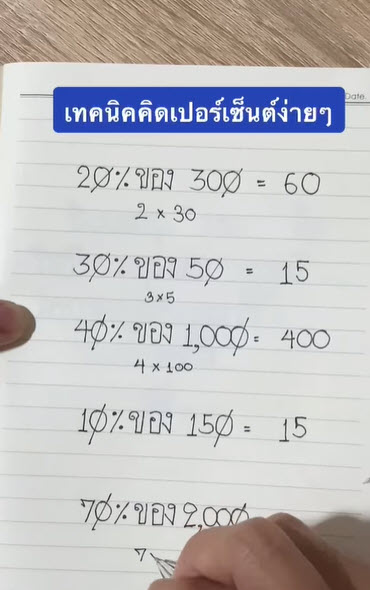 Date.
เทคนิคคิดเปอร์เซ็นต์ง่ายๆ
20% ของ 300 = 60
2 × 30
30% ของ 50 = 15
3×5
40% ของ 1,000 = 400
4 × 100
10% ของ 150 = 15
70% ของ 2,000
7